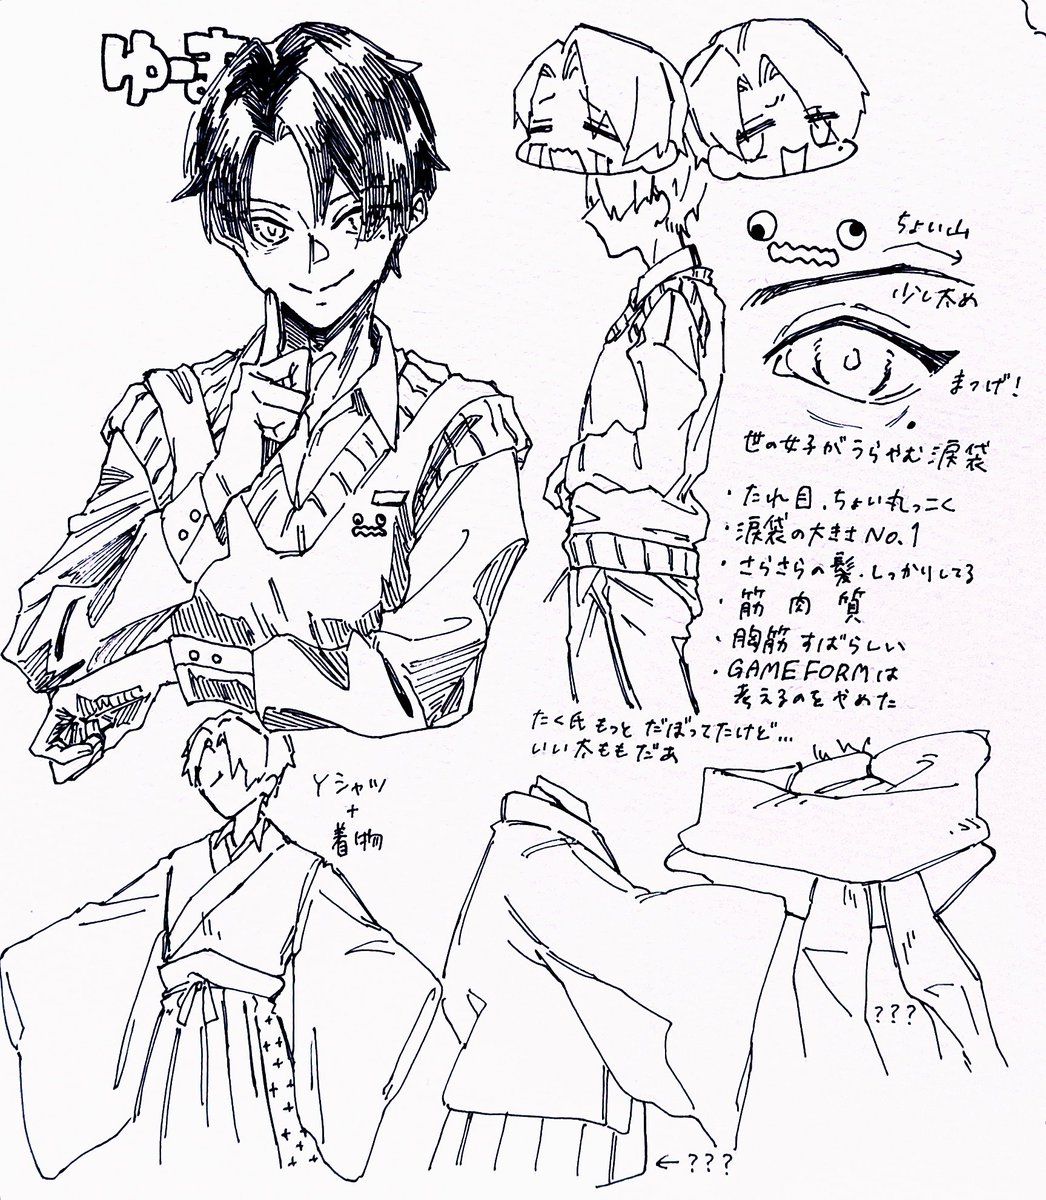 ゆーま
ちょい山
少し太め
まつげ!
世の女子がうらやむ涙袋
・たれ目、ちょい丸っこく
・涙袋の大きさNo.1
・さらさらの髪、しっかりしてる
・筋肉質
・胸筋すばらしい
・GAMEFORMは
考えるのをやめた
たく氏もっとだぼってたけど...
いい太ももだあ
Yシャツ
+
着物
???
←???